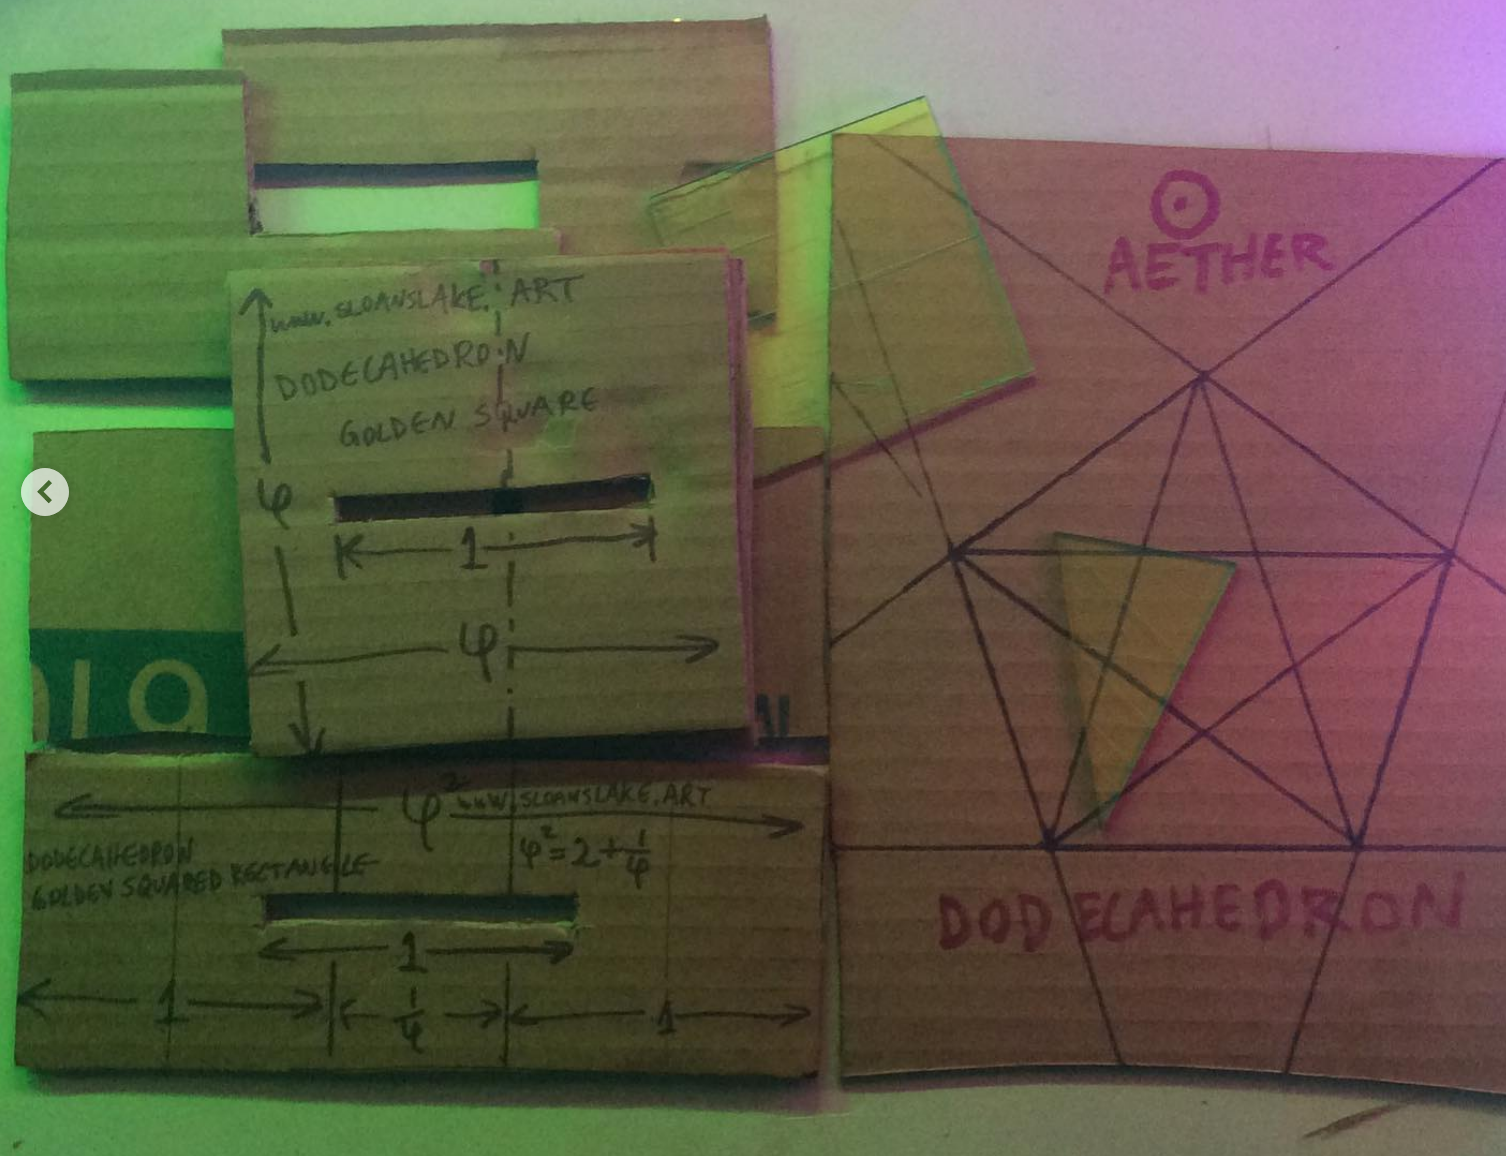 www.SLOANSLAKE.ART
DODECAHEDRON
GOLDEN SQUARE
φ
1
φ
φ²
www.SLOANSLAKE.ART
φ²=2+1/φ
DODECAHEDRON
GOLDEN SQUARED RECTANGLE
1
1
1/φ
1
AETHER
DODECAHEDRON